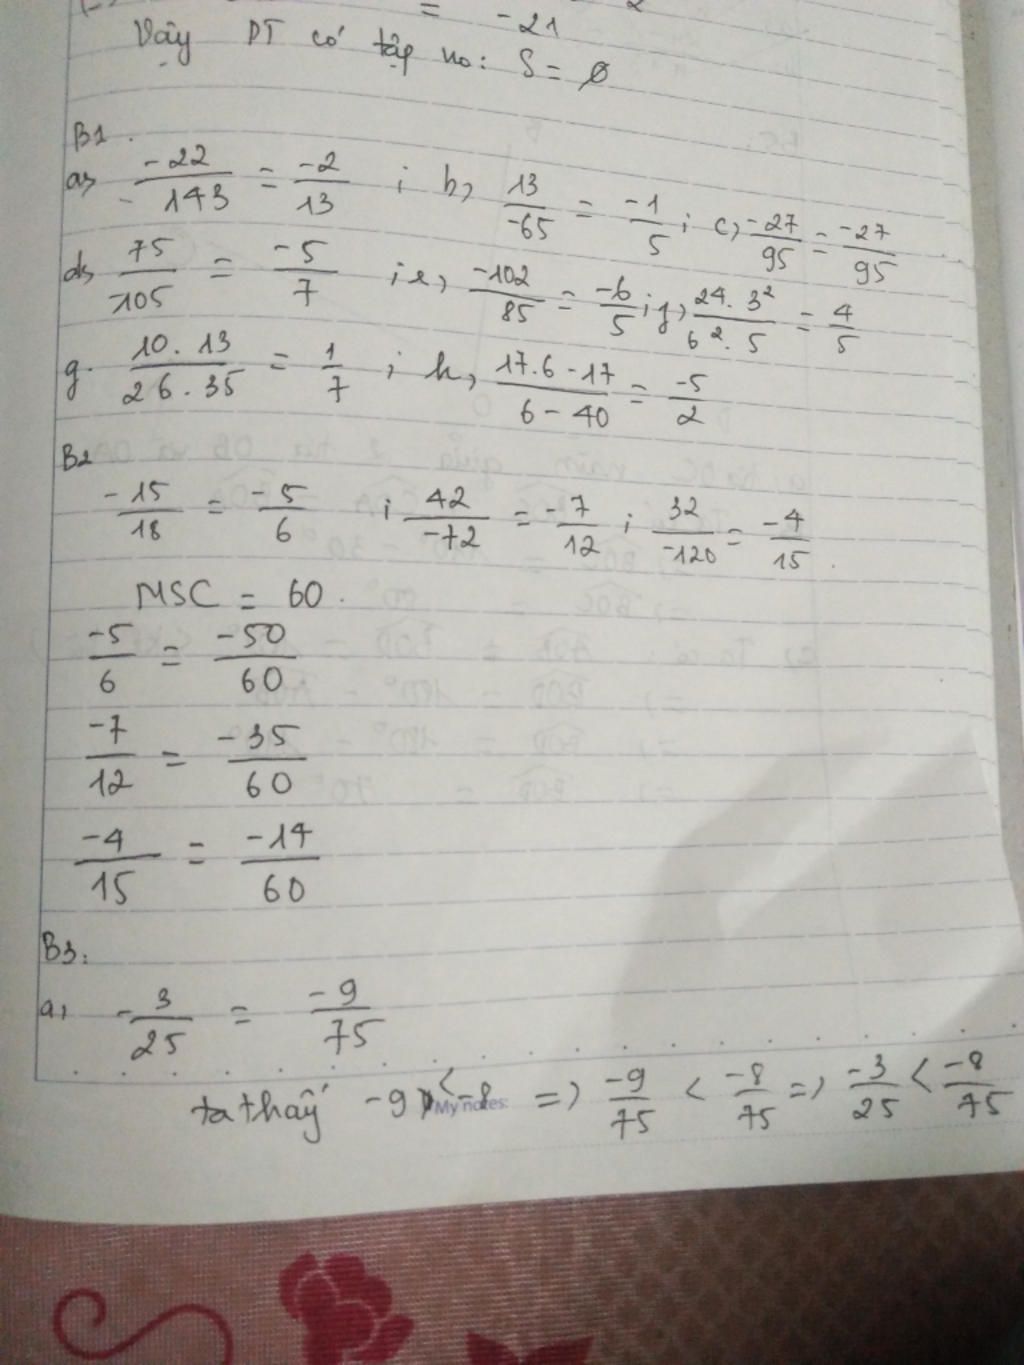 = -21
Vậy PT có tập no: S = ∅
B1.
a, -22/-143 = -2/13 ; b, 13/-65 = -1/5 ; c, -27/95 = -27/95
d, 75/105 = -5/7 ; e, -102/85 = -6/5 ; f, 24.3²/6².5 = 4/5
g. 10.13/26.35 = 1/7 ; h, 17.6-17/6-40 = -5/2
B2
-15/18 = -5/6 ; 42/-72 = -7/12 ; 32/-120 = -4/15.
MSC = 60.
-5/6 = -50/60
-7/12 = -35/60
-4/15 = -14/60
B3:
a, -3/25 = -9/75
ta thấy -9 < -8 => -9/75 < -8/75 => -3/25 < -8/75
My notes: